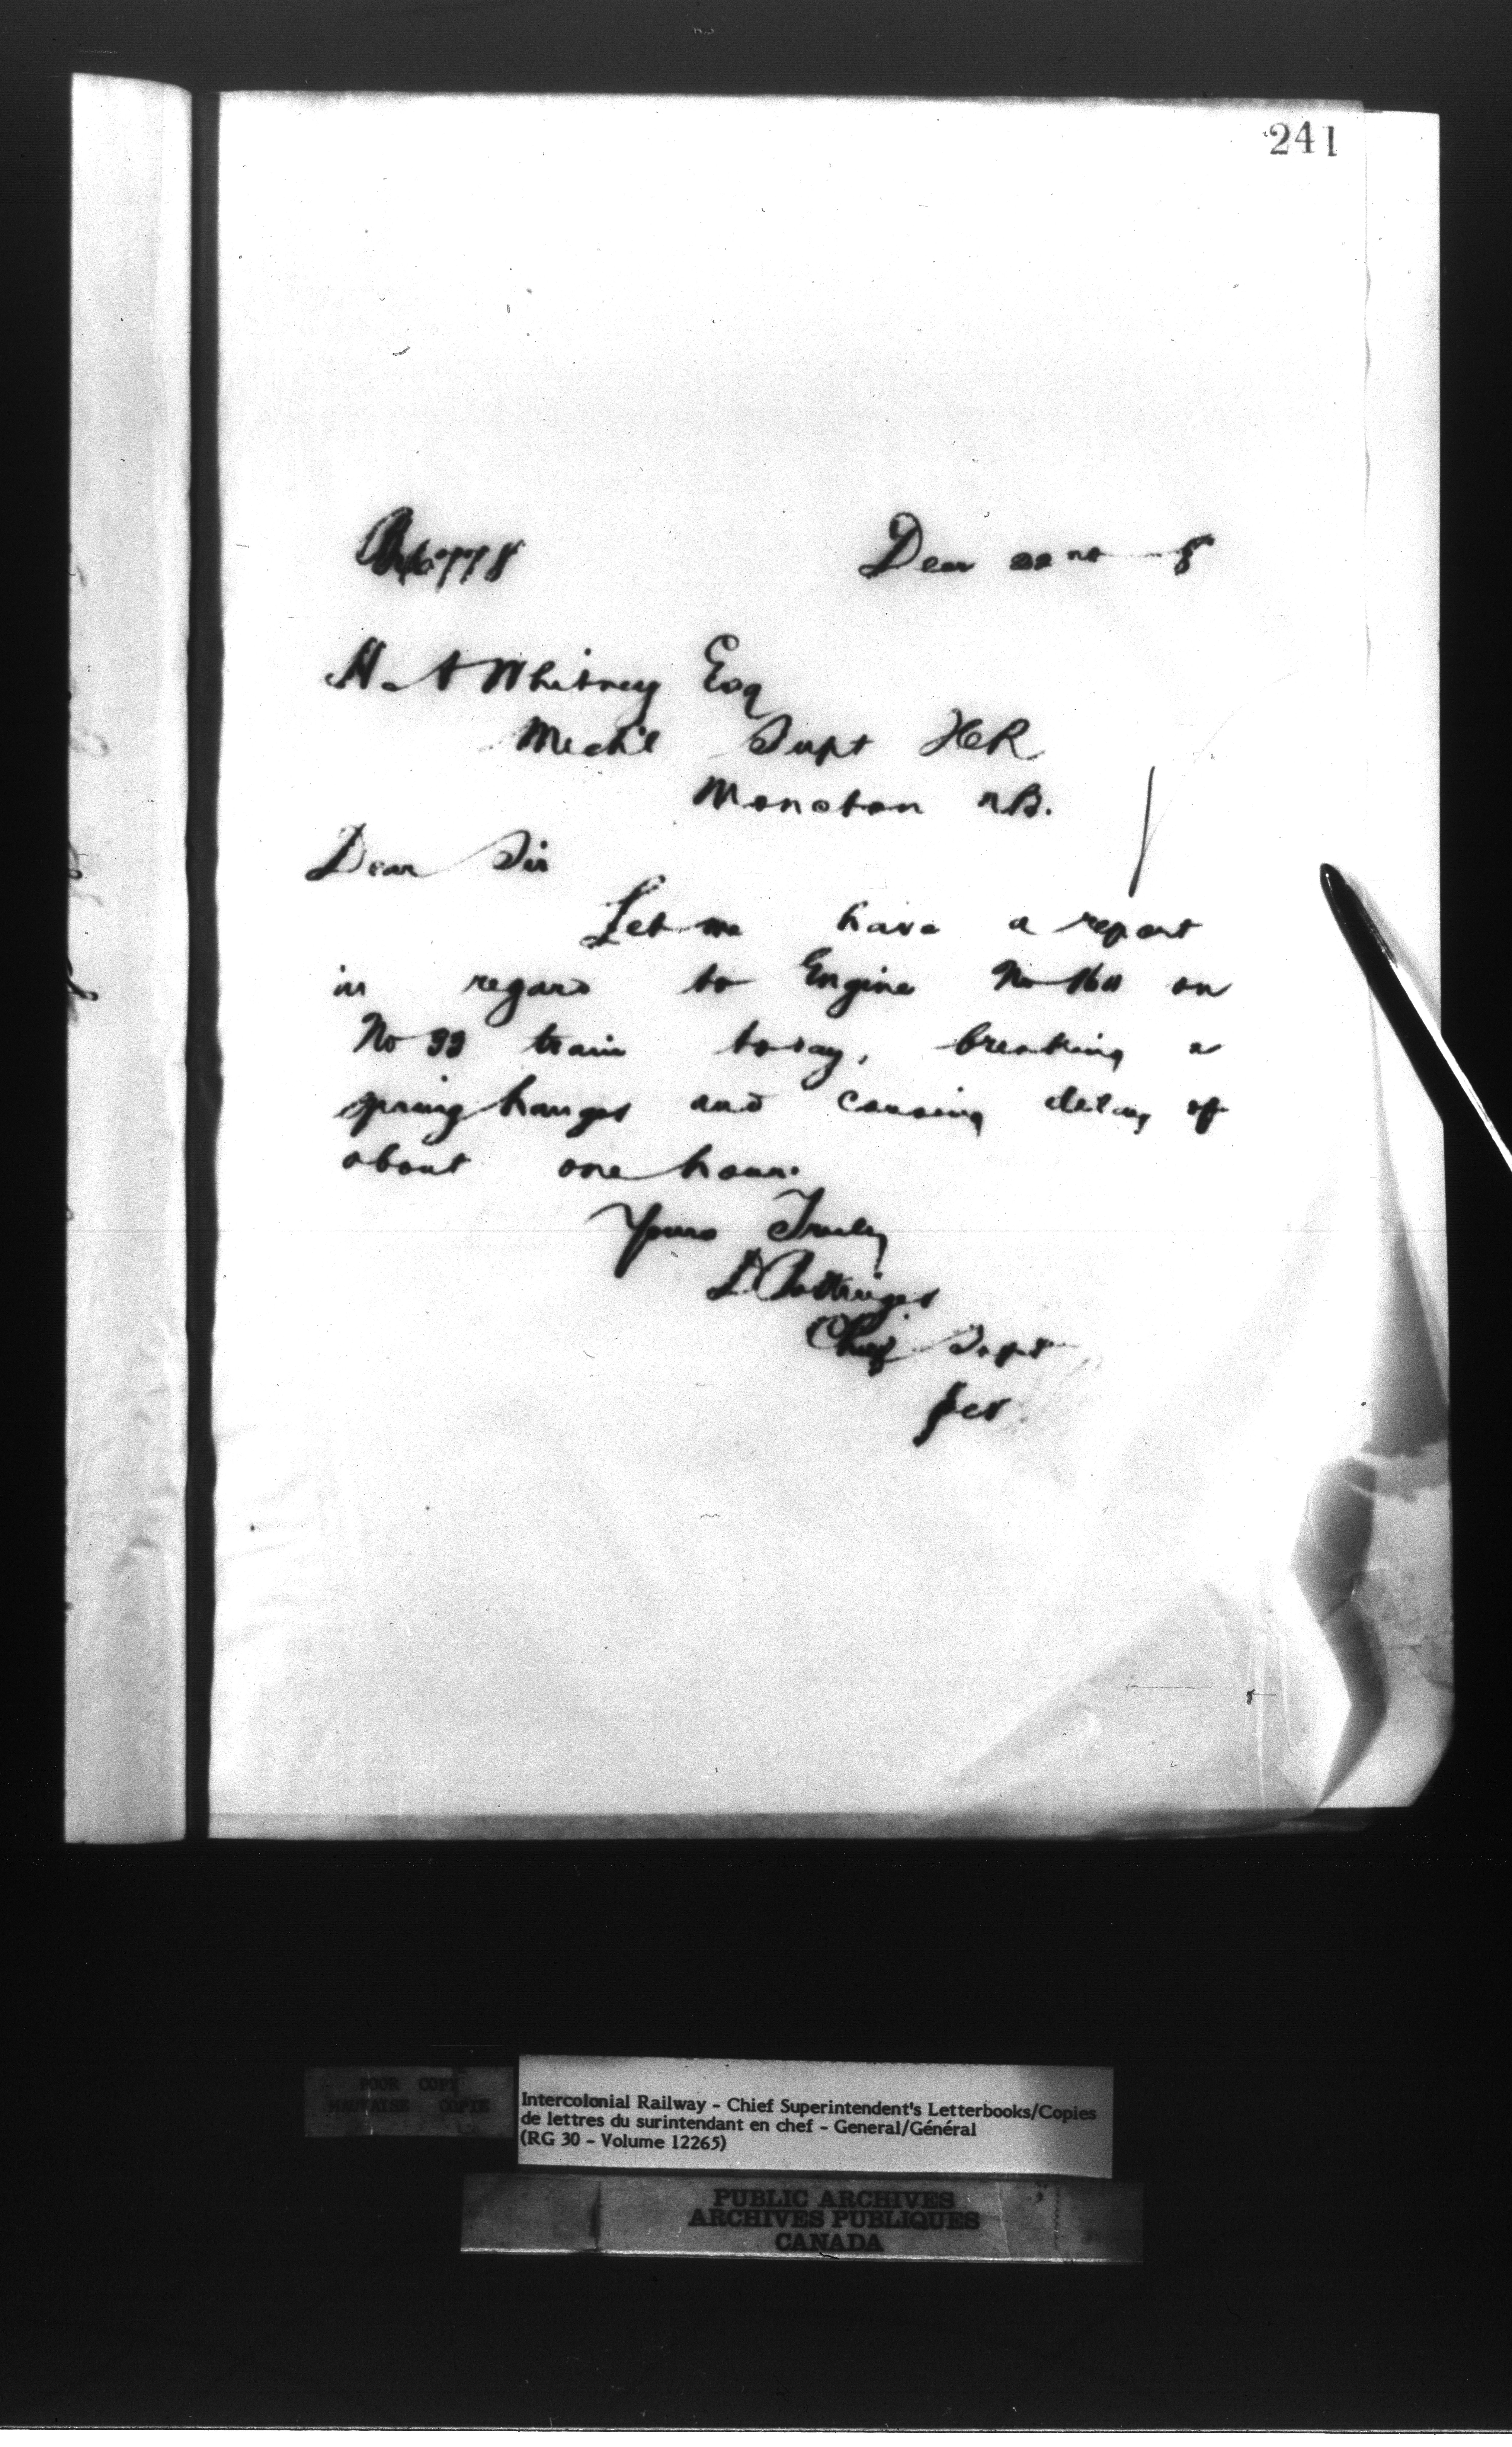 241
Decr 22nd
H. A Whitney Esq
Mechl Supt ICR
Moncton N.B.
Dear Sir
Let me have a report
in regard to Engine No on
No 33 train today, breaking a
spring hanger and causing delay of
about one hour.
Yours Truly
D Pottinger
Chief Supt
POOR COPY
MAUVAISE COPIE
Intercolonial Railway - Chief Superintendent's Letterbooks/Copies
de lettres du surintendant en chef - General/Général
(RG 30 - Volume 12265)
PUBLIC ARCHIVES
ARCHIVES PUBLIQUES
CANADA